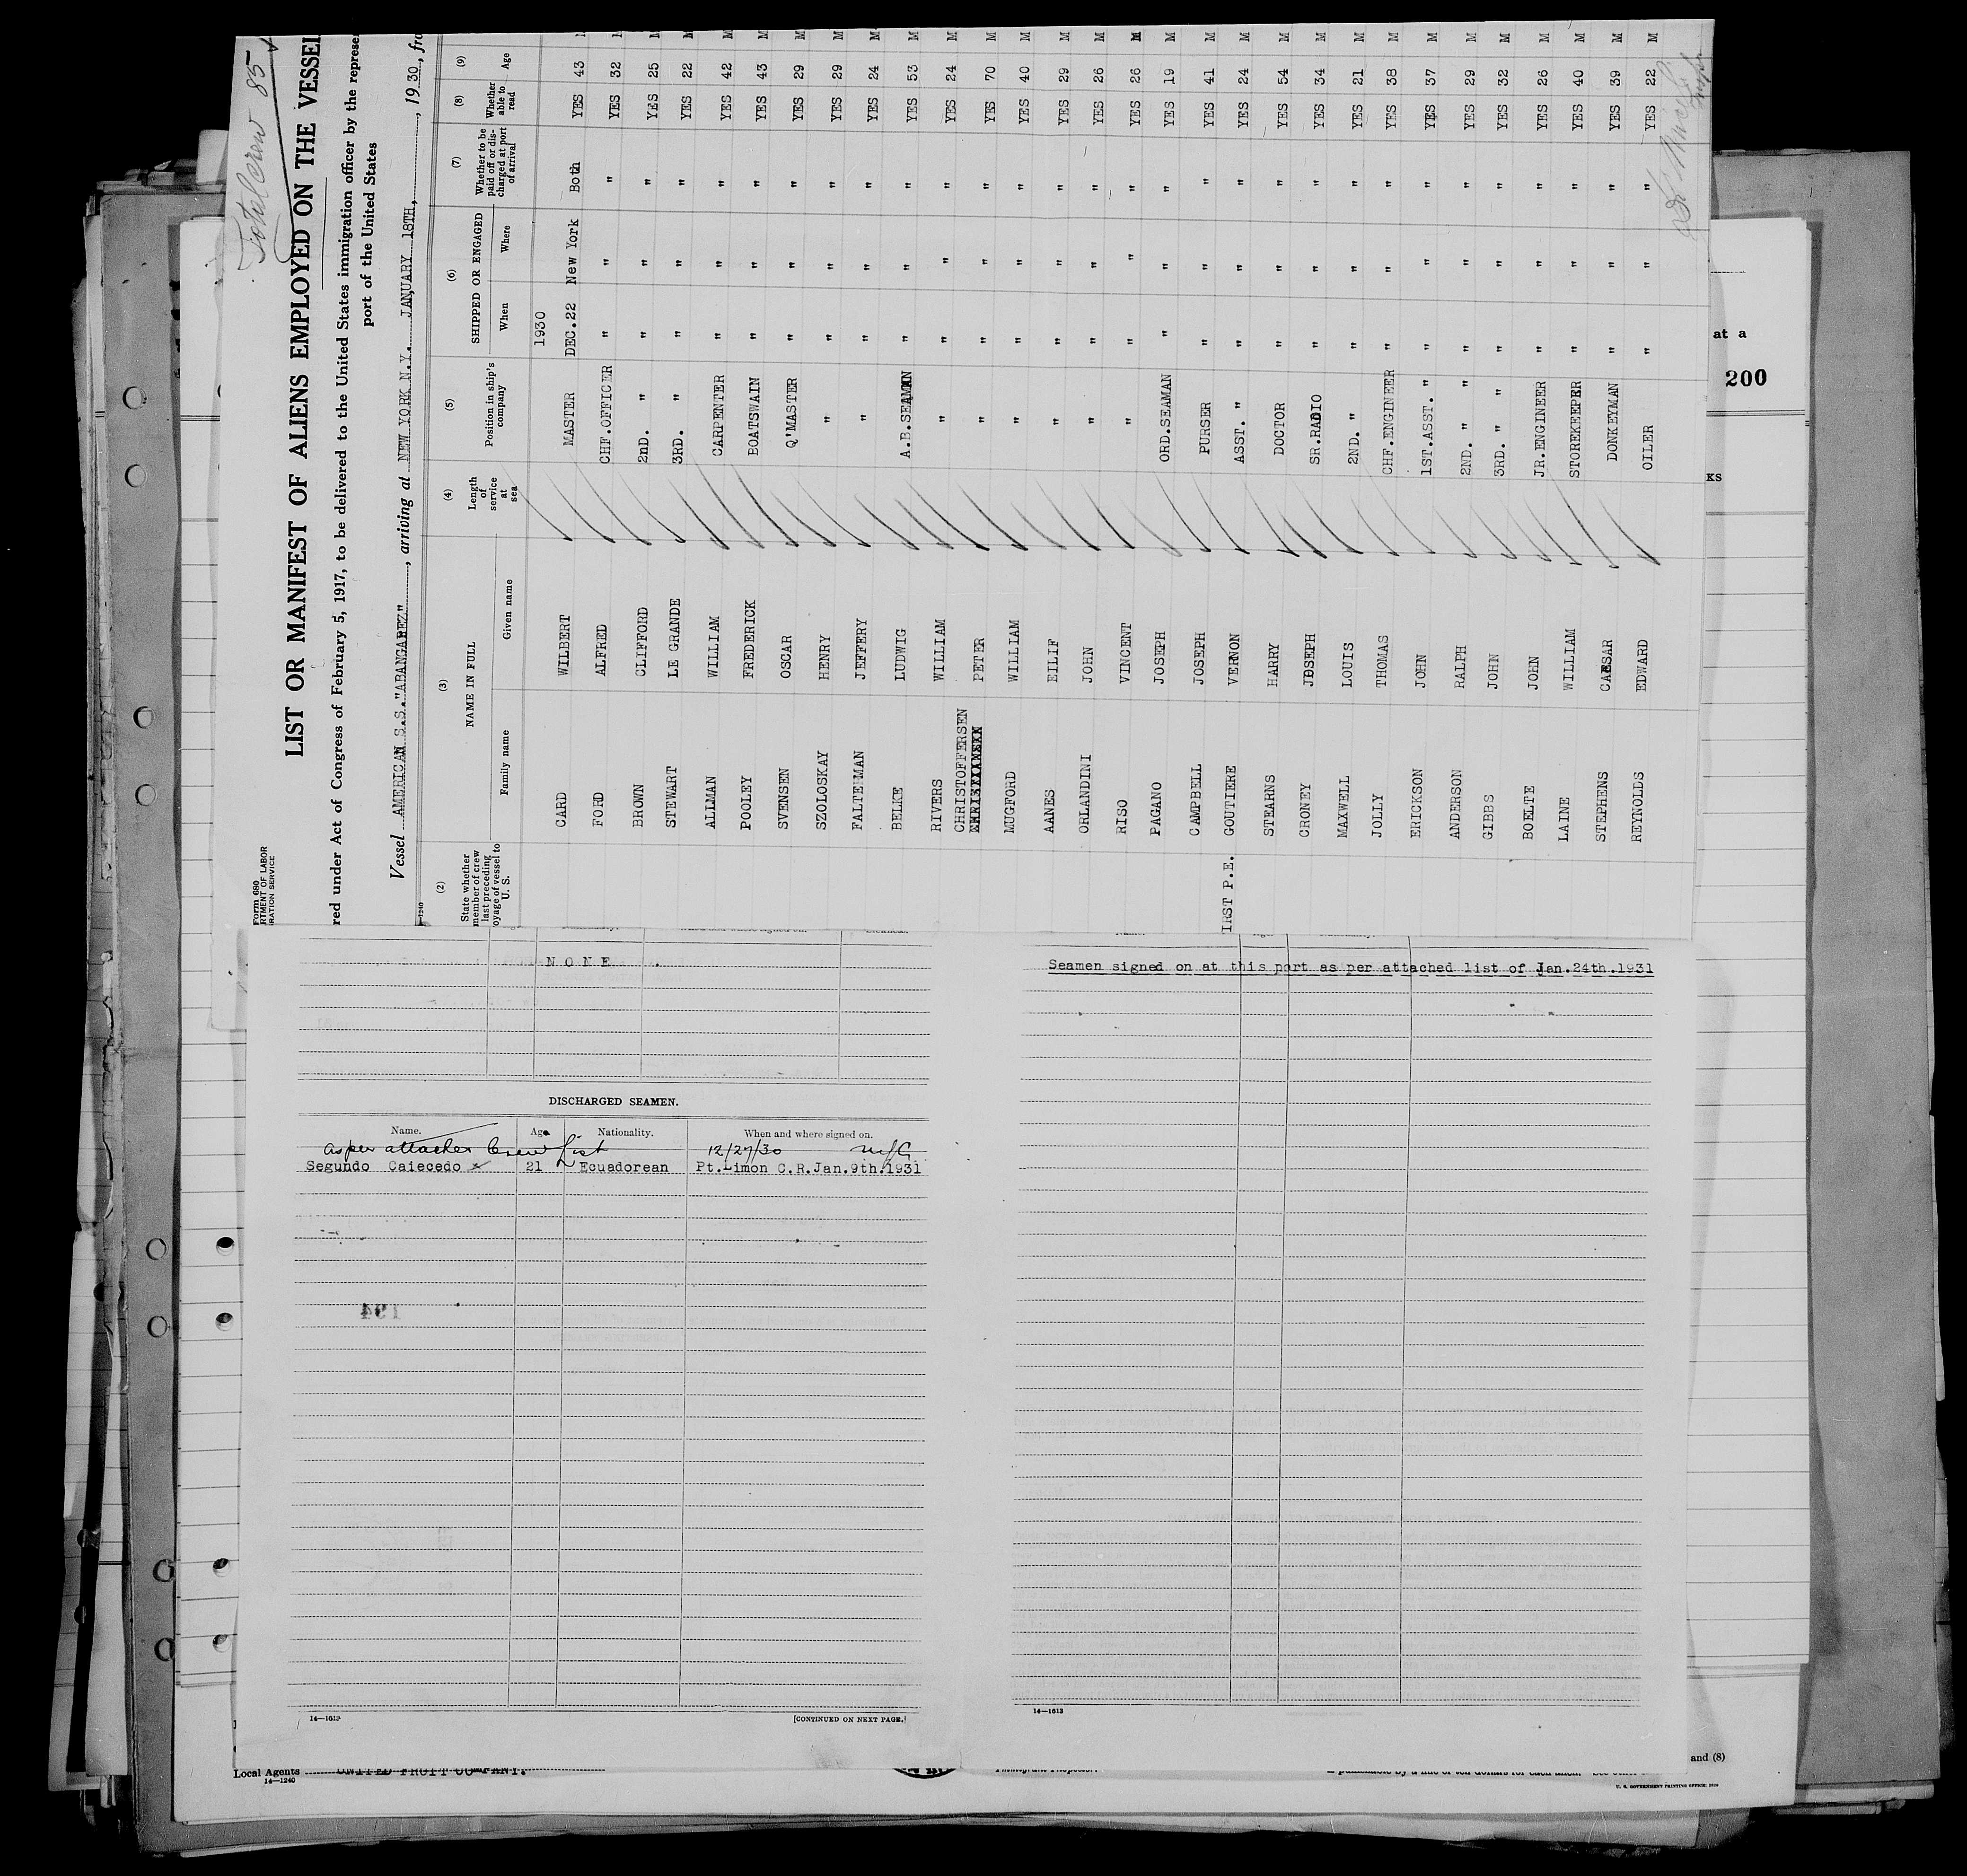 Total crew 85
Form 680
RTMENT OF LABOR
RATION SERVICE
LIST OR MANIFEST OF ALIENS EMPLOYED ON THE VESSEL
red under Act of Congress of February 5, 1917, to be delivered to the United States immigration officer by the represe
port of the United States
Vessel AMERICAN S.S."ABANGAREZ", arriving at NEW YORK N.Y. JANUARY 18TH, , 1930, fro
-1240
(2) (3) (4) (5) (6) (7) (8) (9)
State whether member of crew last preceding oyage of vessel to U. S. NAME IN FULL Family name Given name Length of service at sea Position in ship's company SHIPPED OR ENGAGED When Where Whether to be paid off or discharged at port of arrival Whether able to read Age
1930
CARD WILBERT MASTER DEC.22 New York Both YES 43
FORD ALFRED CHF.OFFICER " " " YES 32
BROWN CLIFFORD 2nD. " " " " YES 25
STEWART LE GRANDE 3RD. " " " " YES 22
ALLMAN WILLIAM CARPENTER " " " YES 42 M
POOLEY FREDERICK BOATSWAIN " " " YES 43 M
SVENSEN OSCAR Q'MASTER " " " YES 29 M
SZOLOSKAY HENRY " " " " YES 29 M
FALTERMAN JEFFERY " " " " YES 24 M
BELKE LUDWIG A.B.SEAMAN " " " YES 53 M
RIVERS WILLIAM " " " " YES 24 M
CHRISTOFFERSEN PETER " " " " YES 70 M
MUGFORD WILLIAM " " " " YES 40 M
AANES EILIF " " " " YES 29 M
ORLANDINI JOHN " " " " YES 26 M
RISO VINCENT " " " " YES 26 M
PAGANO JOSEPH ORD.SEAMAN " " " YES 19 M
CAMPBELL JOSEPH PURSER " " " YES 41 M
IRST P.E. GOUTIERE VERNON ASST. " " " " YES 24 M
STEARNS HARRY DOCTOR " " " YES 54 M
CRONEY JOSEPH SR.RADIO " " " YES 34 M
MAXWELL LOUIS 2ND. " " " " YES 21 M
JOLLY THOMAS CHF.ENGINEER " " " YES 38 M
ERICKSON JOHN 1ST.ASST. " " " " YES 37 M
ANDERSON RALPH 2ND. " " " " " YES 29 M
GIBBS JOHN 3RD. " " " " " YES 32 M
BOELTE JOHN JR.ENGINEER " " " YES 26 M
LAINE WILLIAM STOREKEEPER " " " YES 40 M
STEPHENS CAESAR DONKEYMAN " " " YES 39 M
REYNOLDS EDWARD OILER " " " YES 22 M
at a
200
KS
NONE .
DISCHARGED SEAMEN.
Name. Age. Nationality. When and where signed on.
as per attached Crew List 12/27/30
Segundo Caiecedo 21 Ecuadorean Pt.Limon C.R.Jan.9th.1931
194
14—1613 [CONTINUED ON NEXT PAGE.]
Seamen signed on at this port as per attached list of Jan.24th.1931
14—1613
Local Agents UNITED FRUIT COMPANY.
14—1240
Immigrant Inspector.
and (8)
U. S. GOVERNMENT PRINTING OFFICE